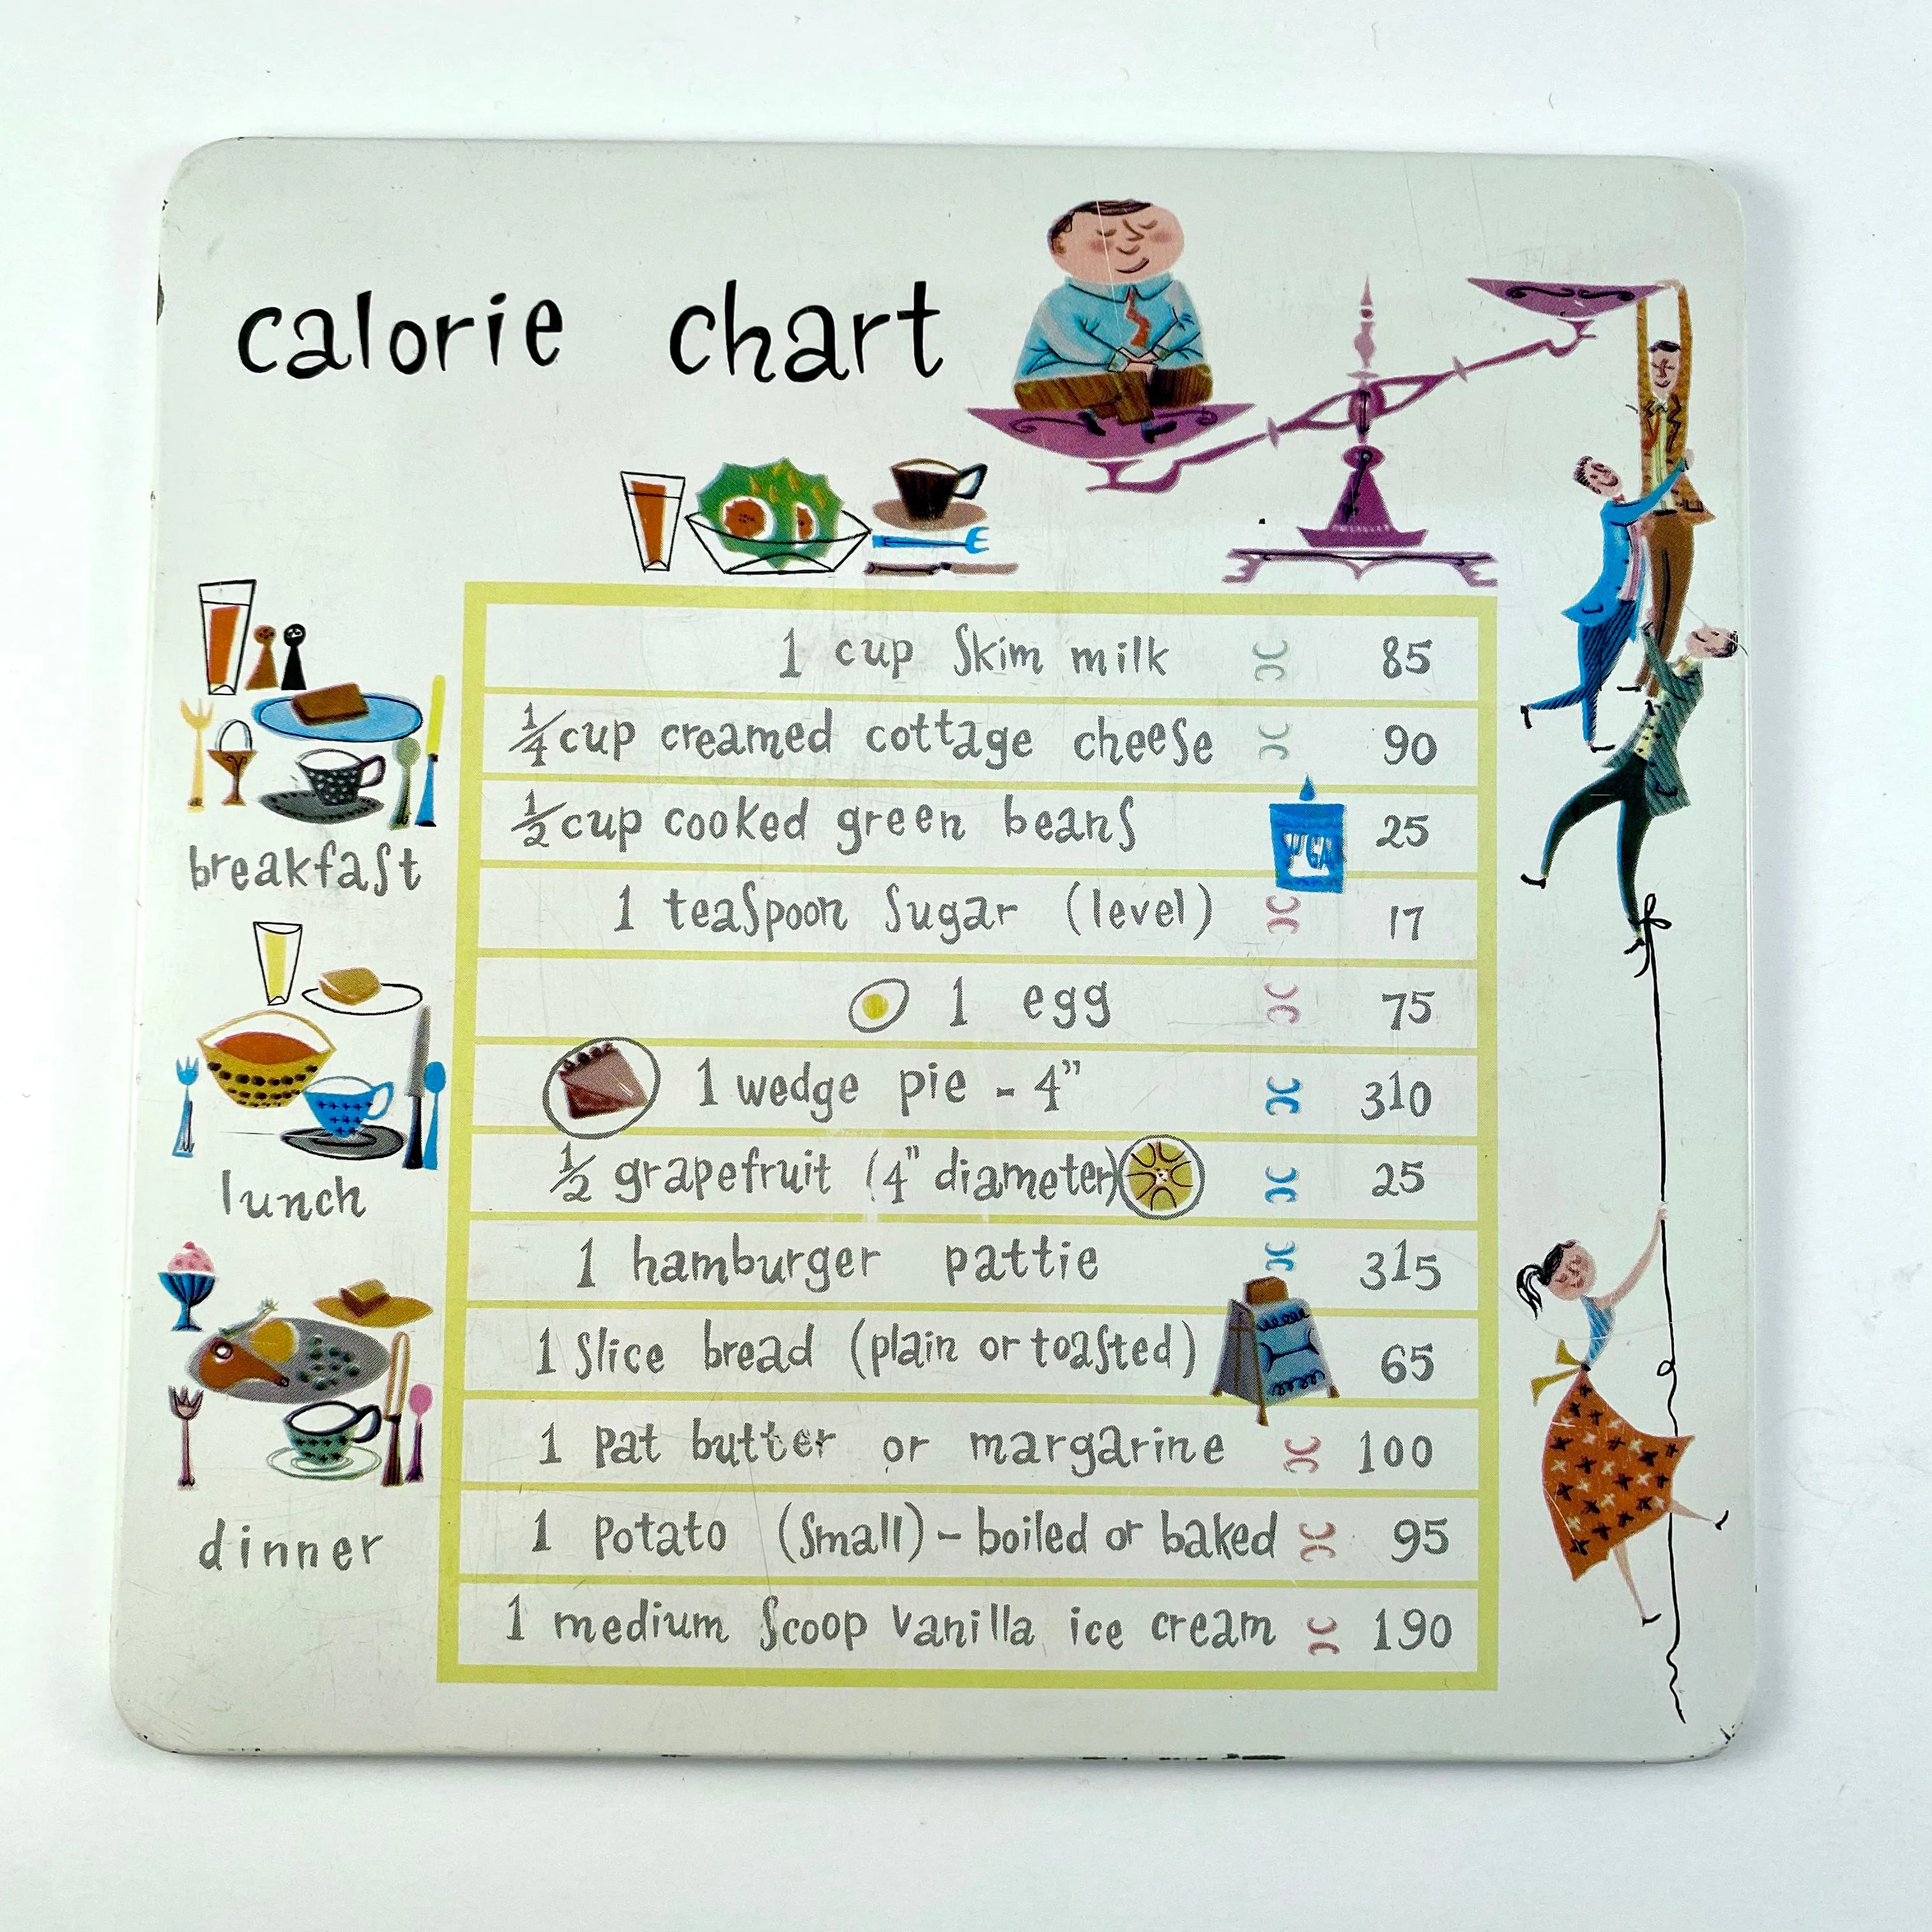 calorie chart
1 cup skim milk 85
1/4 cup creamed cottage cheese 90
1/2 cup cooked green beans 25
1 teaspoon sugar (level) 17
1 egg 75
1 wedge pie - 4" 310
1/2 grapefruit (4" diameter) 25
1 hamburger pattie 315
1 slice bread (plain or toasted) 65
1 pat butter or margarine 100
1 potato (small) - boiled or baked 95
1 medium scoop vanilla ice cream 190
breakfast
lunch
dinner